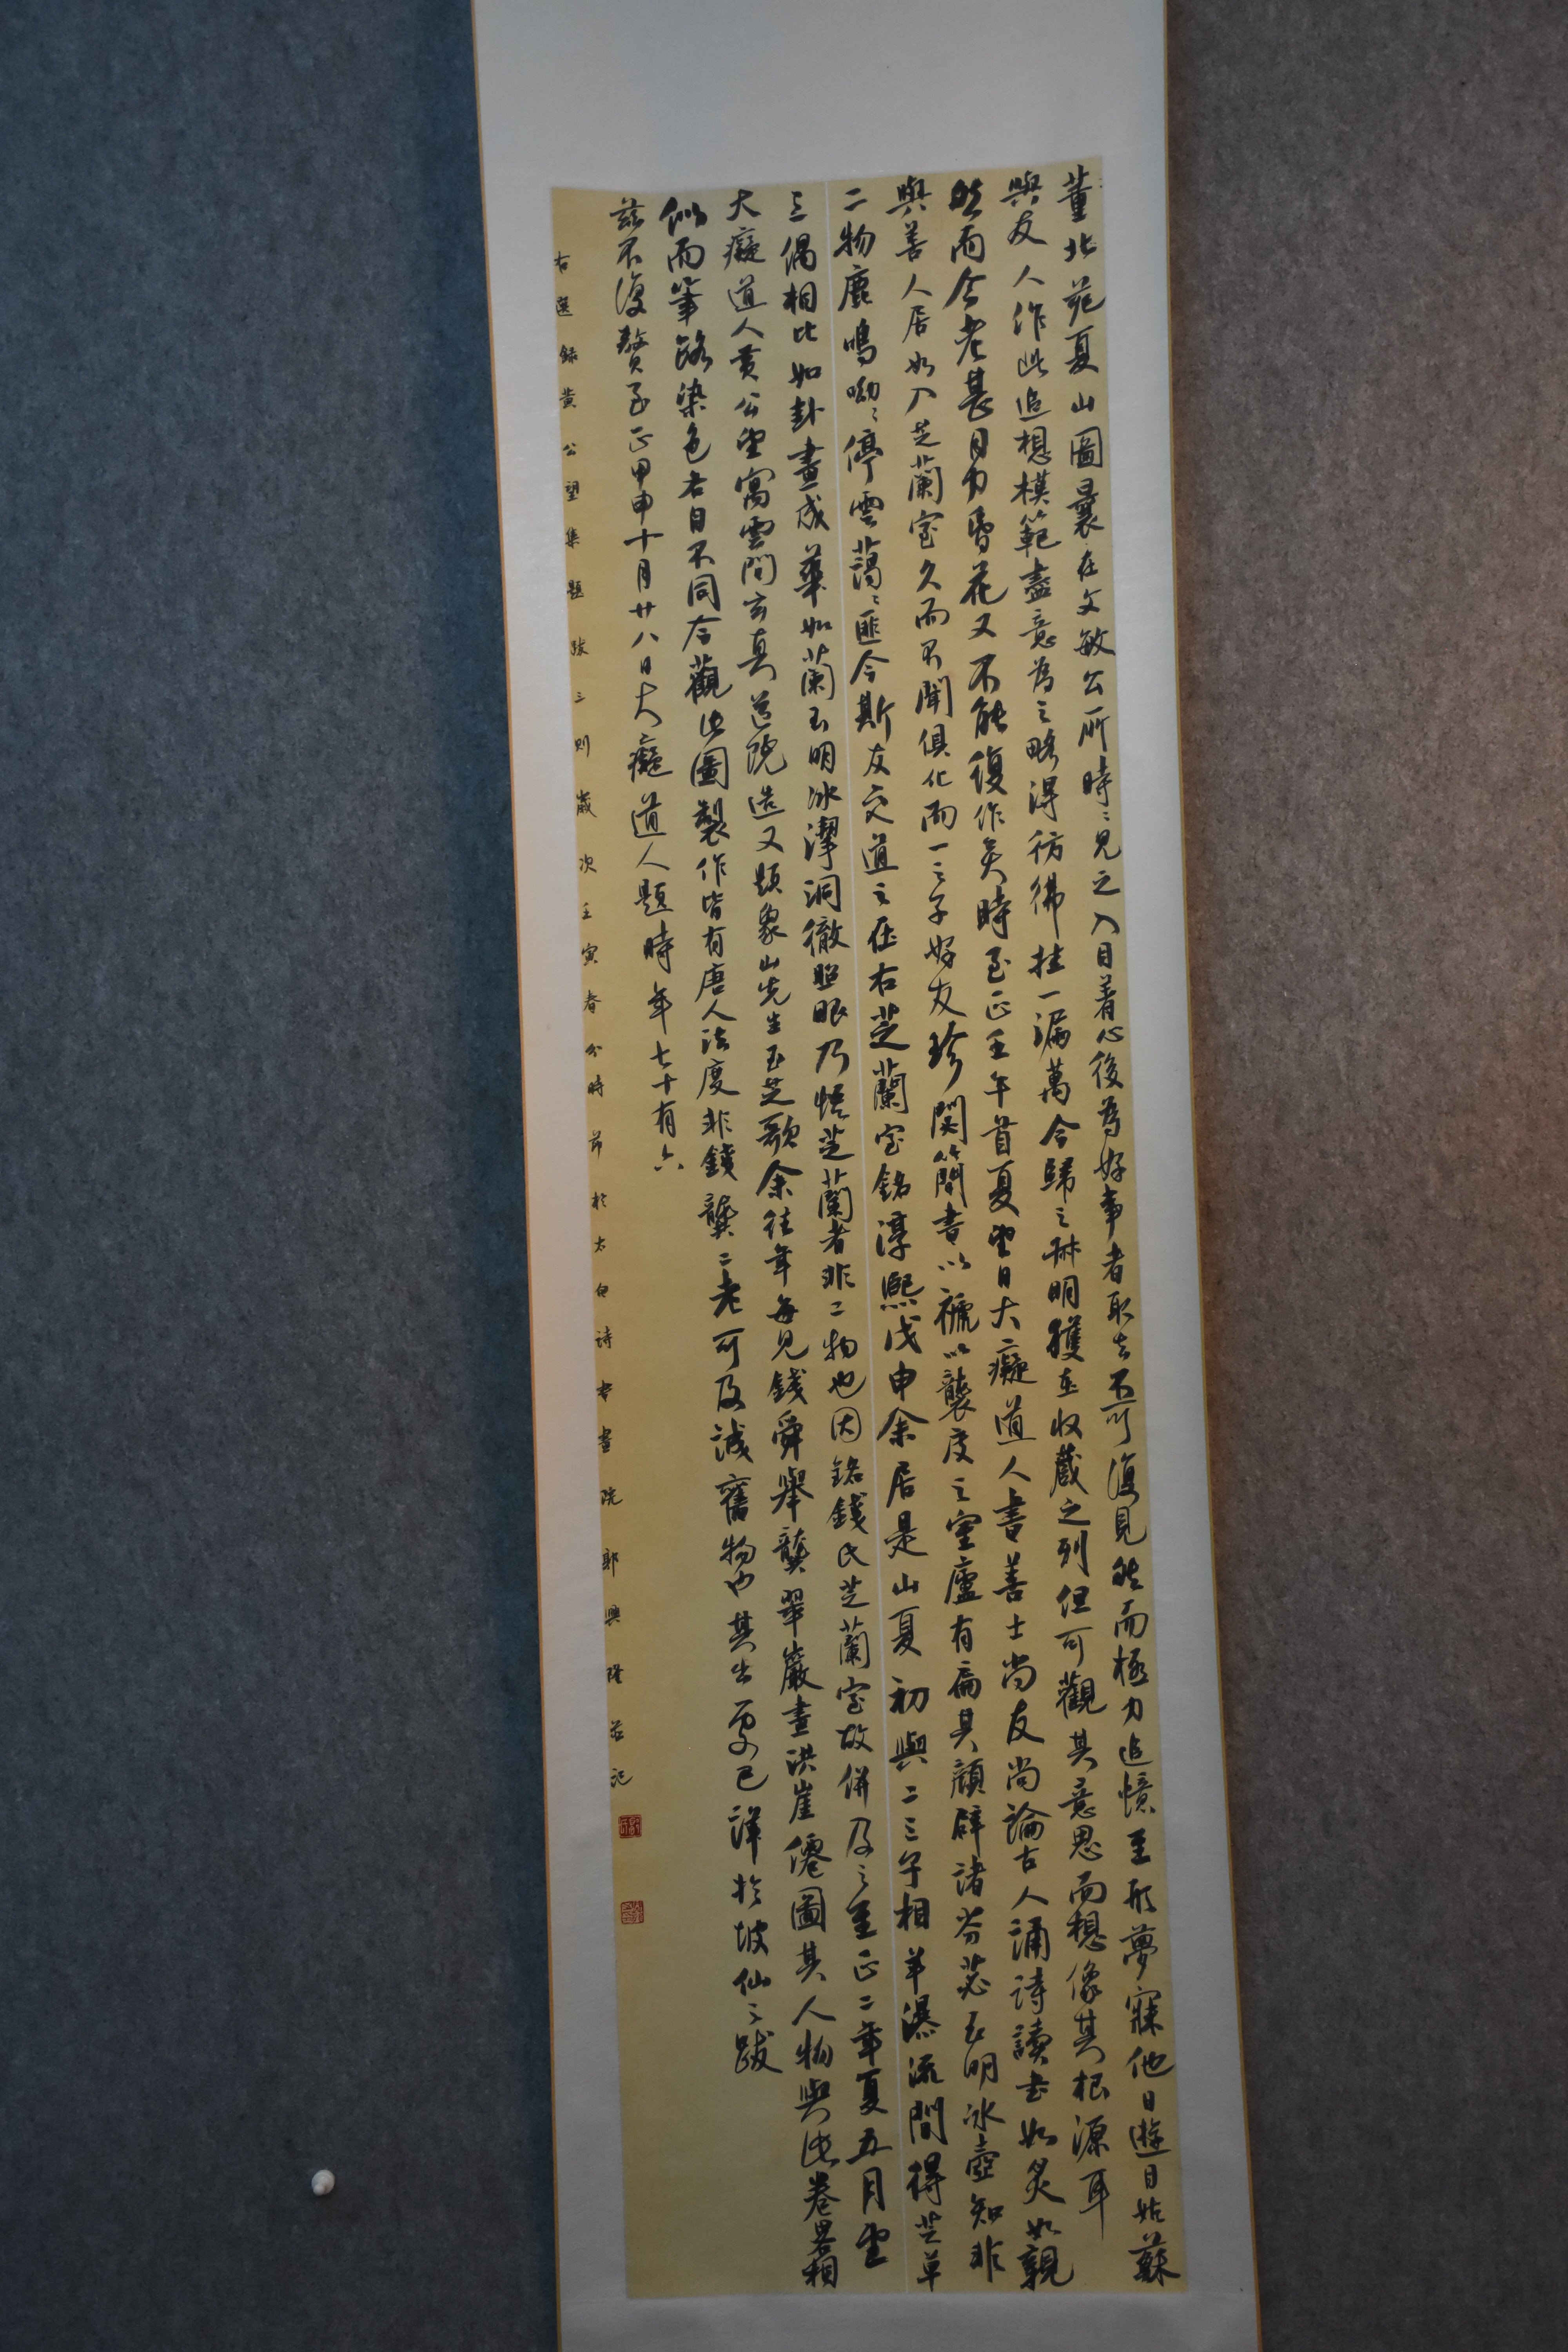 董北苑夏山圖曩在文敏公所時〻見之入目著心後為好事者取去不可復見然而極力追憶至形夢寐他日遊目姑蘇
與友人作此追想模範盡意為之略得彷彿挂一漏萬今歸之琳明獲在收藏之列但可觀其意思而想像其根源耳
然而今老甚目力昏花又不能復作矣時至正壬午首夏望日大癡道人書善士尚友尚論古人誦詩讀書如炙如親
與善人居如入芝蘭室久而不聞俱化而一二子好友珍閟簡書以褫以襲度之室廬有扁其顏辟諸芬苾玉明冰壺知非
二物鹿鳴呦〻停雲藹〻匪今斯友交道之在右芝蘭室銘淳熙戊申余居是山夏初與二三子相羊瀑流間得芝草
三偶相比如卦畫成華如蘭玉明冰潔洞徹照眼乃悟芝蘭者非二物也因銘錢氏芝蘭室故併及之至正二年夏五月望
大癡道人黃公望寓雲間玄真道院造又題象山先生玉芝歌余往年每見錢舜舉龔翠巖畫洪崖僊圖其人物與此卷畧相
似而筆路染色右自不同今觀此圖製作皆有唐人法度非錢龔二老可及誠舊物也其出處已詳於坡仙之跋
茲不復贅至正甲申十月廿八日大癡道人題時年七十有六
右選錄黃公望集題跋三則歲次壬寅春分時節於太白詩書畫院郭興隆並記